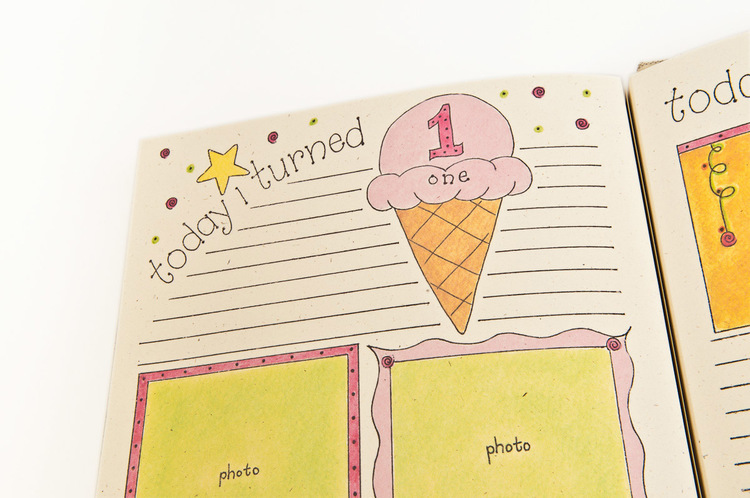 today I turned
1
one
photo
photo